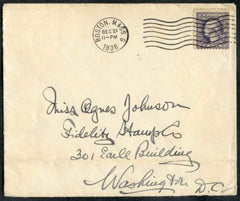 BOSTON, MASS.
DEC 21
11-PM
1936
Miss Agnes Johnson
Fidelity Stamp Co
301 Earle Building
Washington D.C.